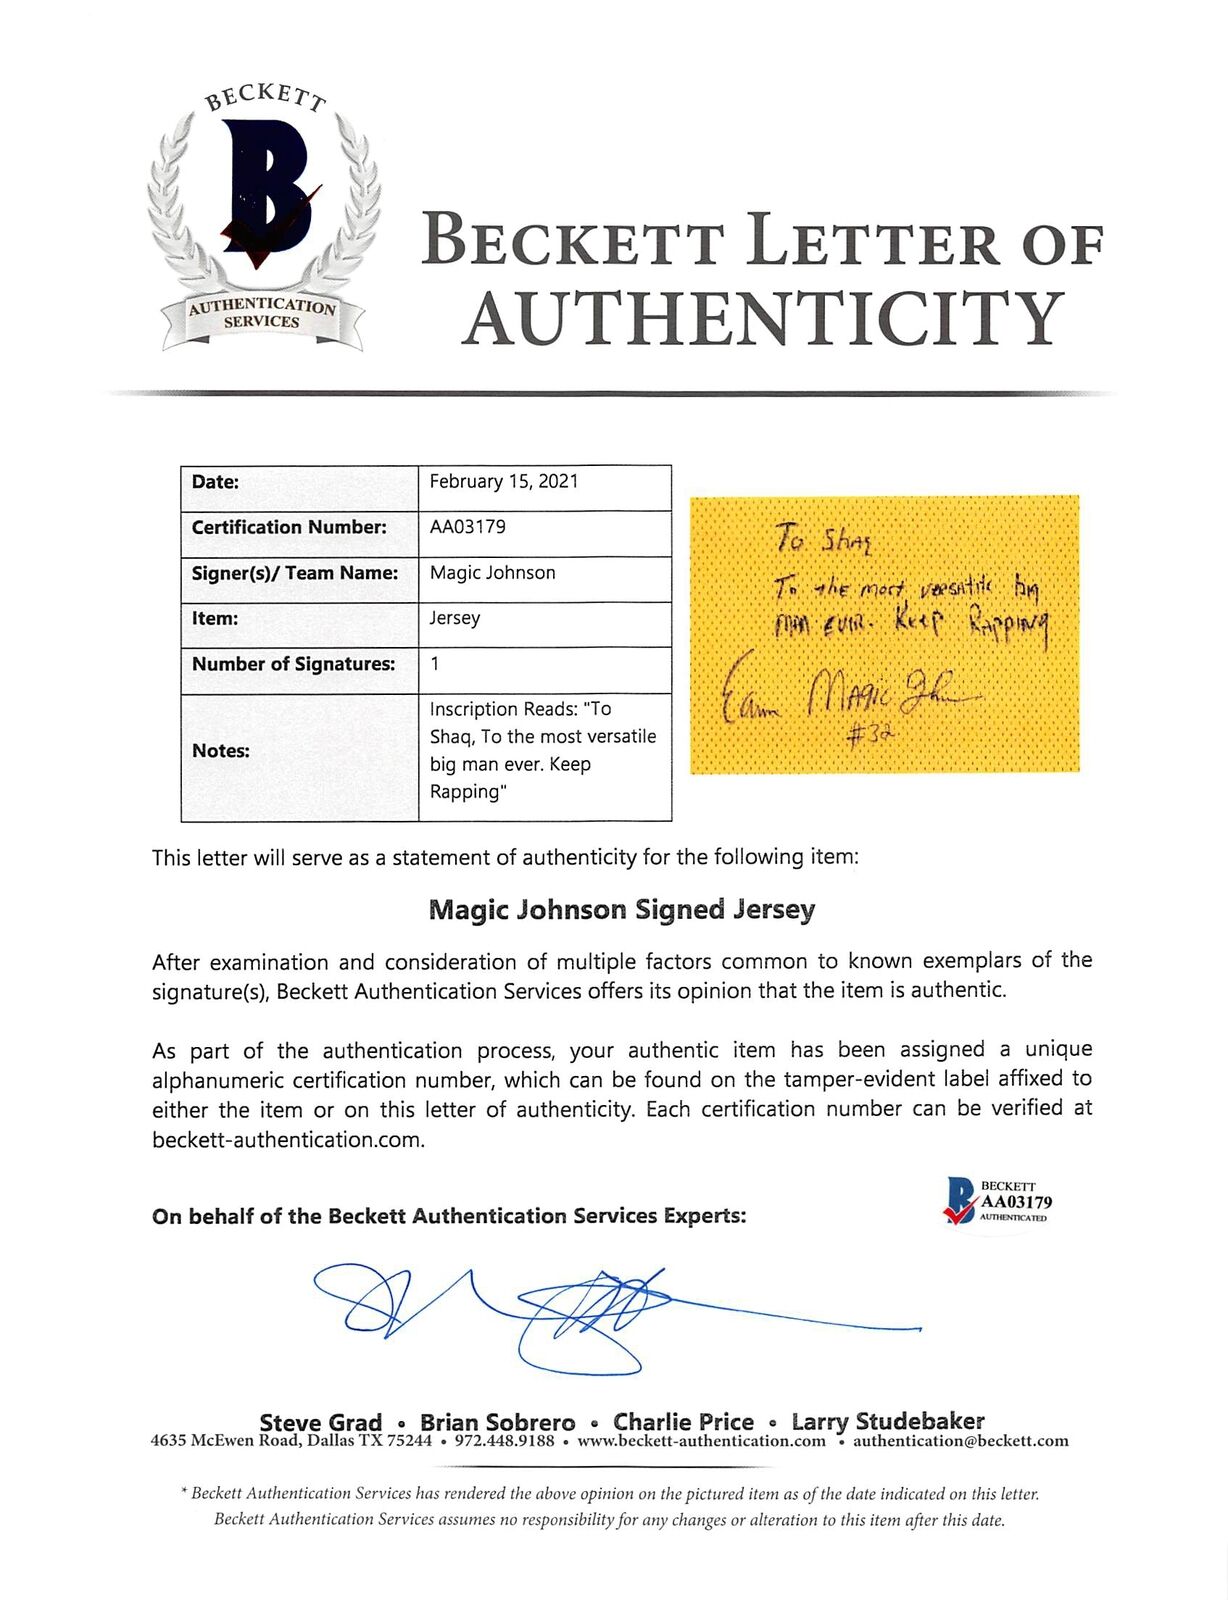 BECKETT
B
AUTHENTICATION
SERVICES
BECKETT LETTER OF
AUTHENTICITY
Date: February 15, 2021
Certification Number: AA03179
Signer(s)/ Team Name: Magic Johnson
Item: Jersey
Number of Signatures: 1
Notes: Inscription Reads: "To
Shaq, To the most versatile
big man ever. Keep
Rapping"
To Shaq
To the most versatile big
man ever. Keep Rapping
Earvin Magic Johnson
#32
This letter will serve as a statement of authenticity for the following item:
Magic Johnson Signed Jersey
After examination and consideration of multiple factors common to known exemplars of the
signature(s), Beckett Authentication Services offers its opinion that the item is authentic.
As part of the authentication process, your authentic item has been assigned a unique
alphanumeric certification number, which can be found on the tamper-evident label affixed to
either the item or on this letter of authenticity. Each certification number can be verified at
beckett-authentication.com.
B BECKETT
AA03179
AUTHENTICATED
On behalf of the Beckett Authentication Services Experts:
Steve Grad • Brian Sobrero • Charlie Price • Larry Studebaker
4635 McEwen Road, Dallas TX 75244 • 972.448.9188 • www.beckett-authentication.com • authentication@beckett.com
* Beckett Authentication Services has rendered the above opinion on the pictured item as of the date indicated on this letter.
Beckett Authentication Services assumes no responsibility for any changes or alteration to this item after this date.